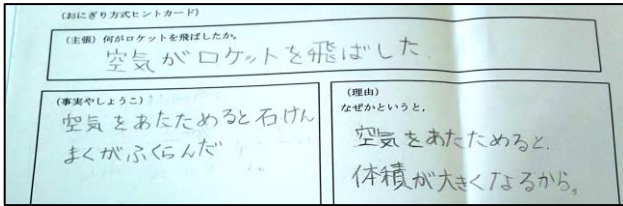 (おにぎり方式ヒントカード)
(主張) 何がロケットを飛ばしたか。
空気がロケットを飛ばした。
(事実やしょうこ)
空気をあたためると石けん
まくがふくらんだ
(理由)
なぜかというと,
空気をあたためると,
体積が大きくなるから。